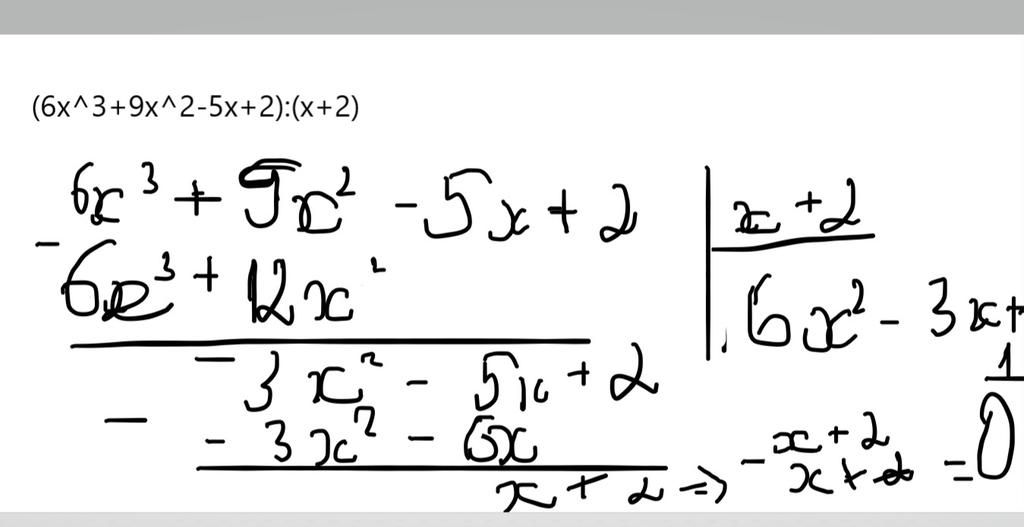 (6x^3+9x^2-5x+2):(x+2)
6x³ + 9x² - 5x + 2 | x + 2
- 6x³ + 12x² | 6x² - 3x +
- 3x² - 5x + 2 1
- - 3x² - 6x
x + 2 => - x + 2 x + 2 = 0